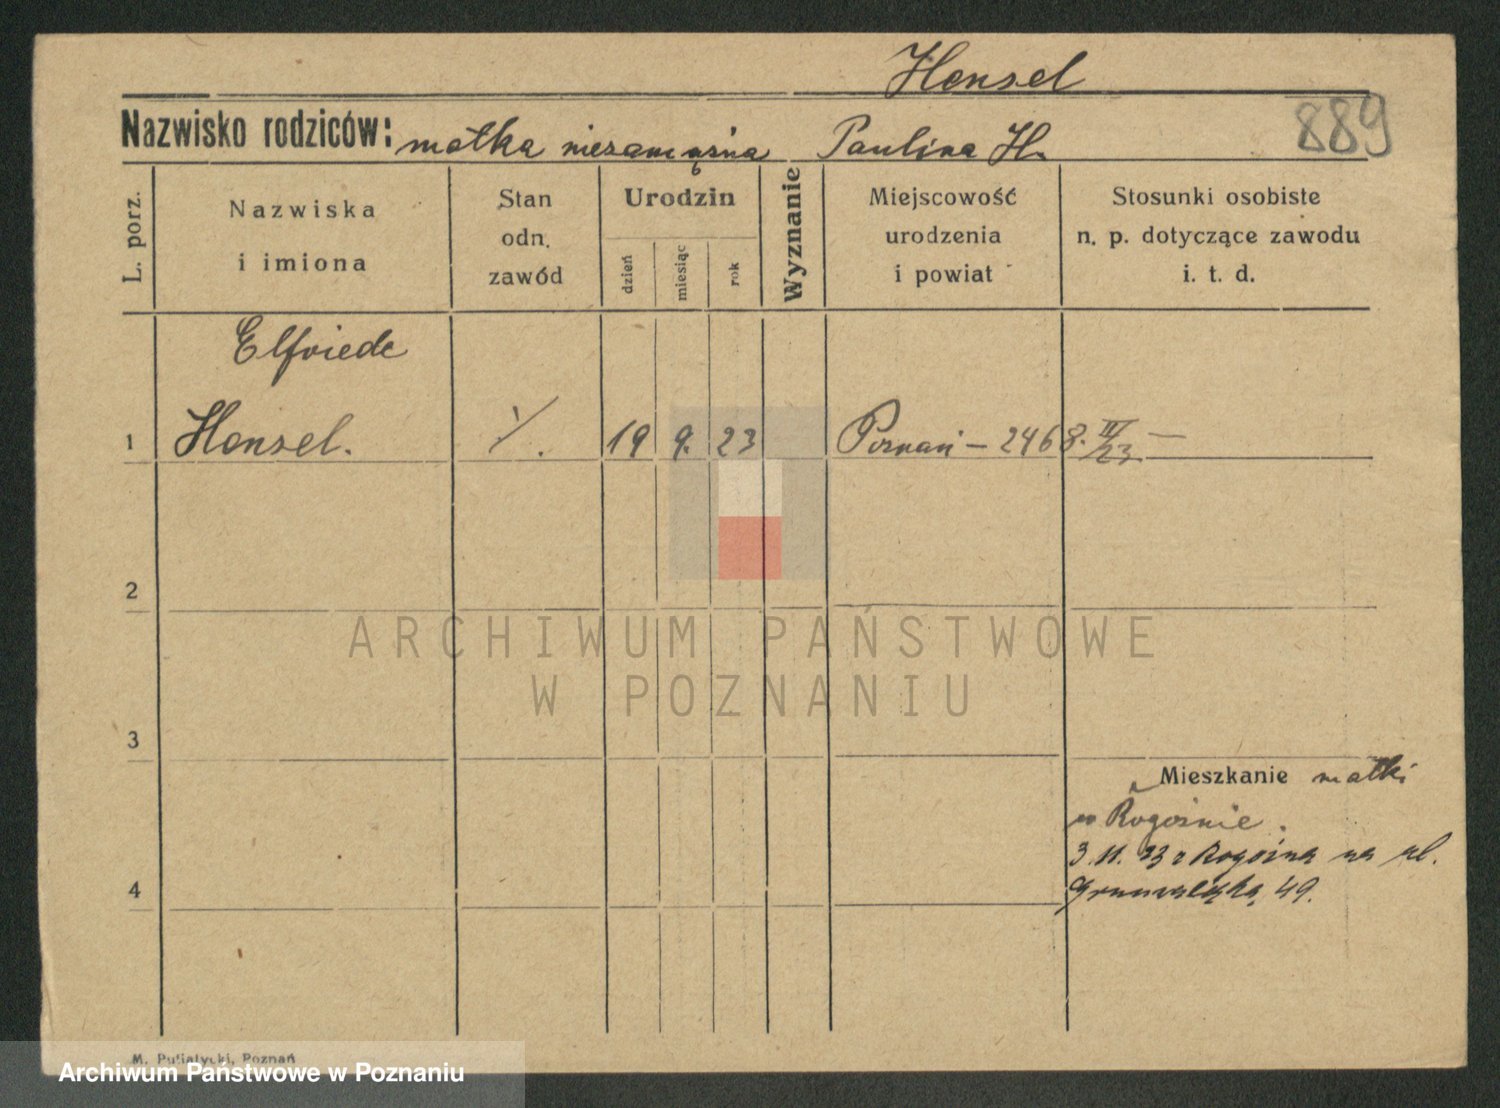 Hensel
Nazwisko rodziców: matka niezamężna Paulina H.
889
L. porz.
Nazwiska
i imiona
Stan
odn.
zawód
Urodzin
dzień
miesiąc
rok
Wyznanie
Miejscowość
urodzenia
i powiat
Stosunki osobiste
n. p. dotyczące zawodu
i. t. d.
Elfriede
1 Hensel. /. 19 9. 23 Poznań – 2468. III/23. —
2
ARCHIWUM PAŃSTWOWE
W POZNANIU
3
Mieszkanie matki
w Rogoźnie.
3.11.23 z Rogoźna na ul.
4
49.
M. Putiatycki, Poznań
Archiwum Państwowe w Poznaniu